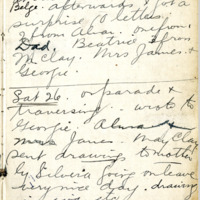 Bilge. afterwards, got a
surprise 8 letters
2 from Alvar. one from
Dad. Beatrice & from
McClay. Mrs James &
Georgie.
Sat 26. on parade &
traversing. wrote to
Georgie.
Mrs James. May Clay
sent drawing to Mother
by Silveria going on leave
very nice day. drawing